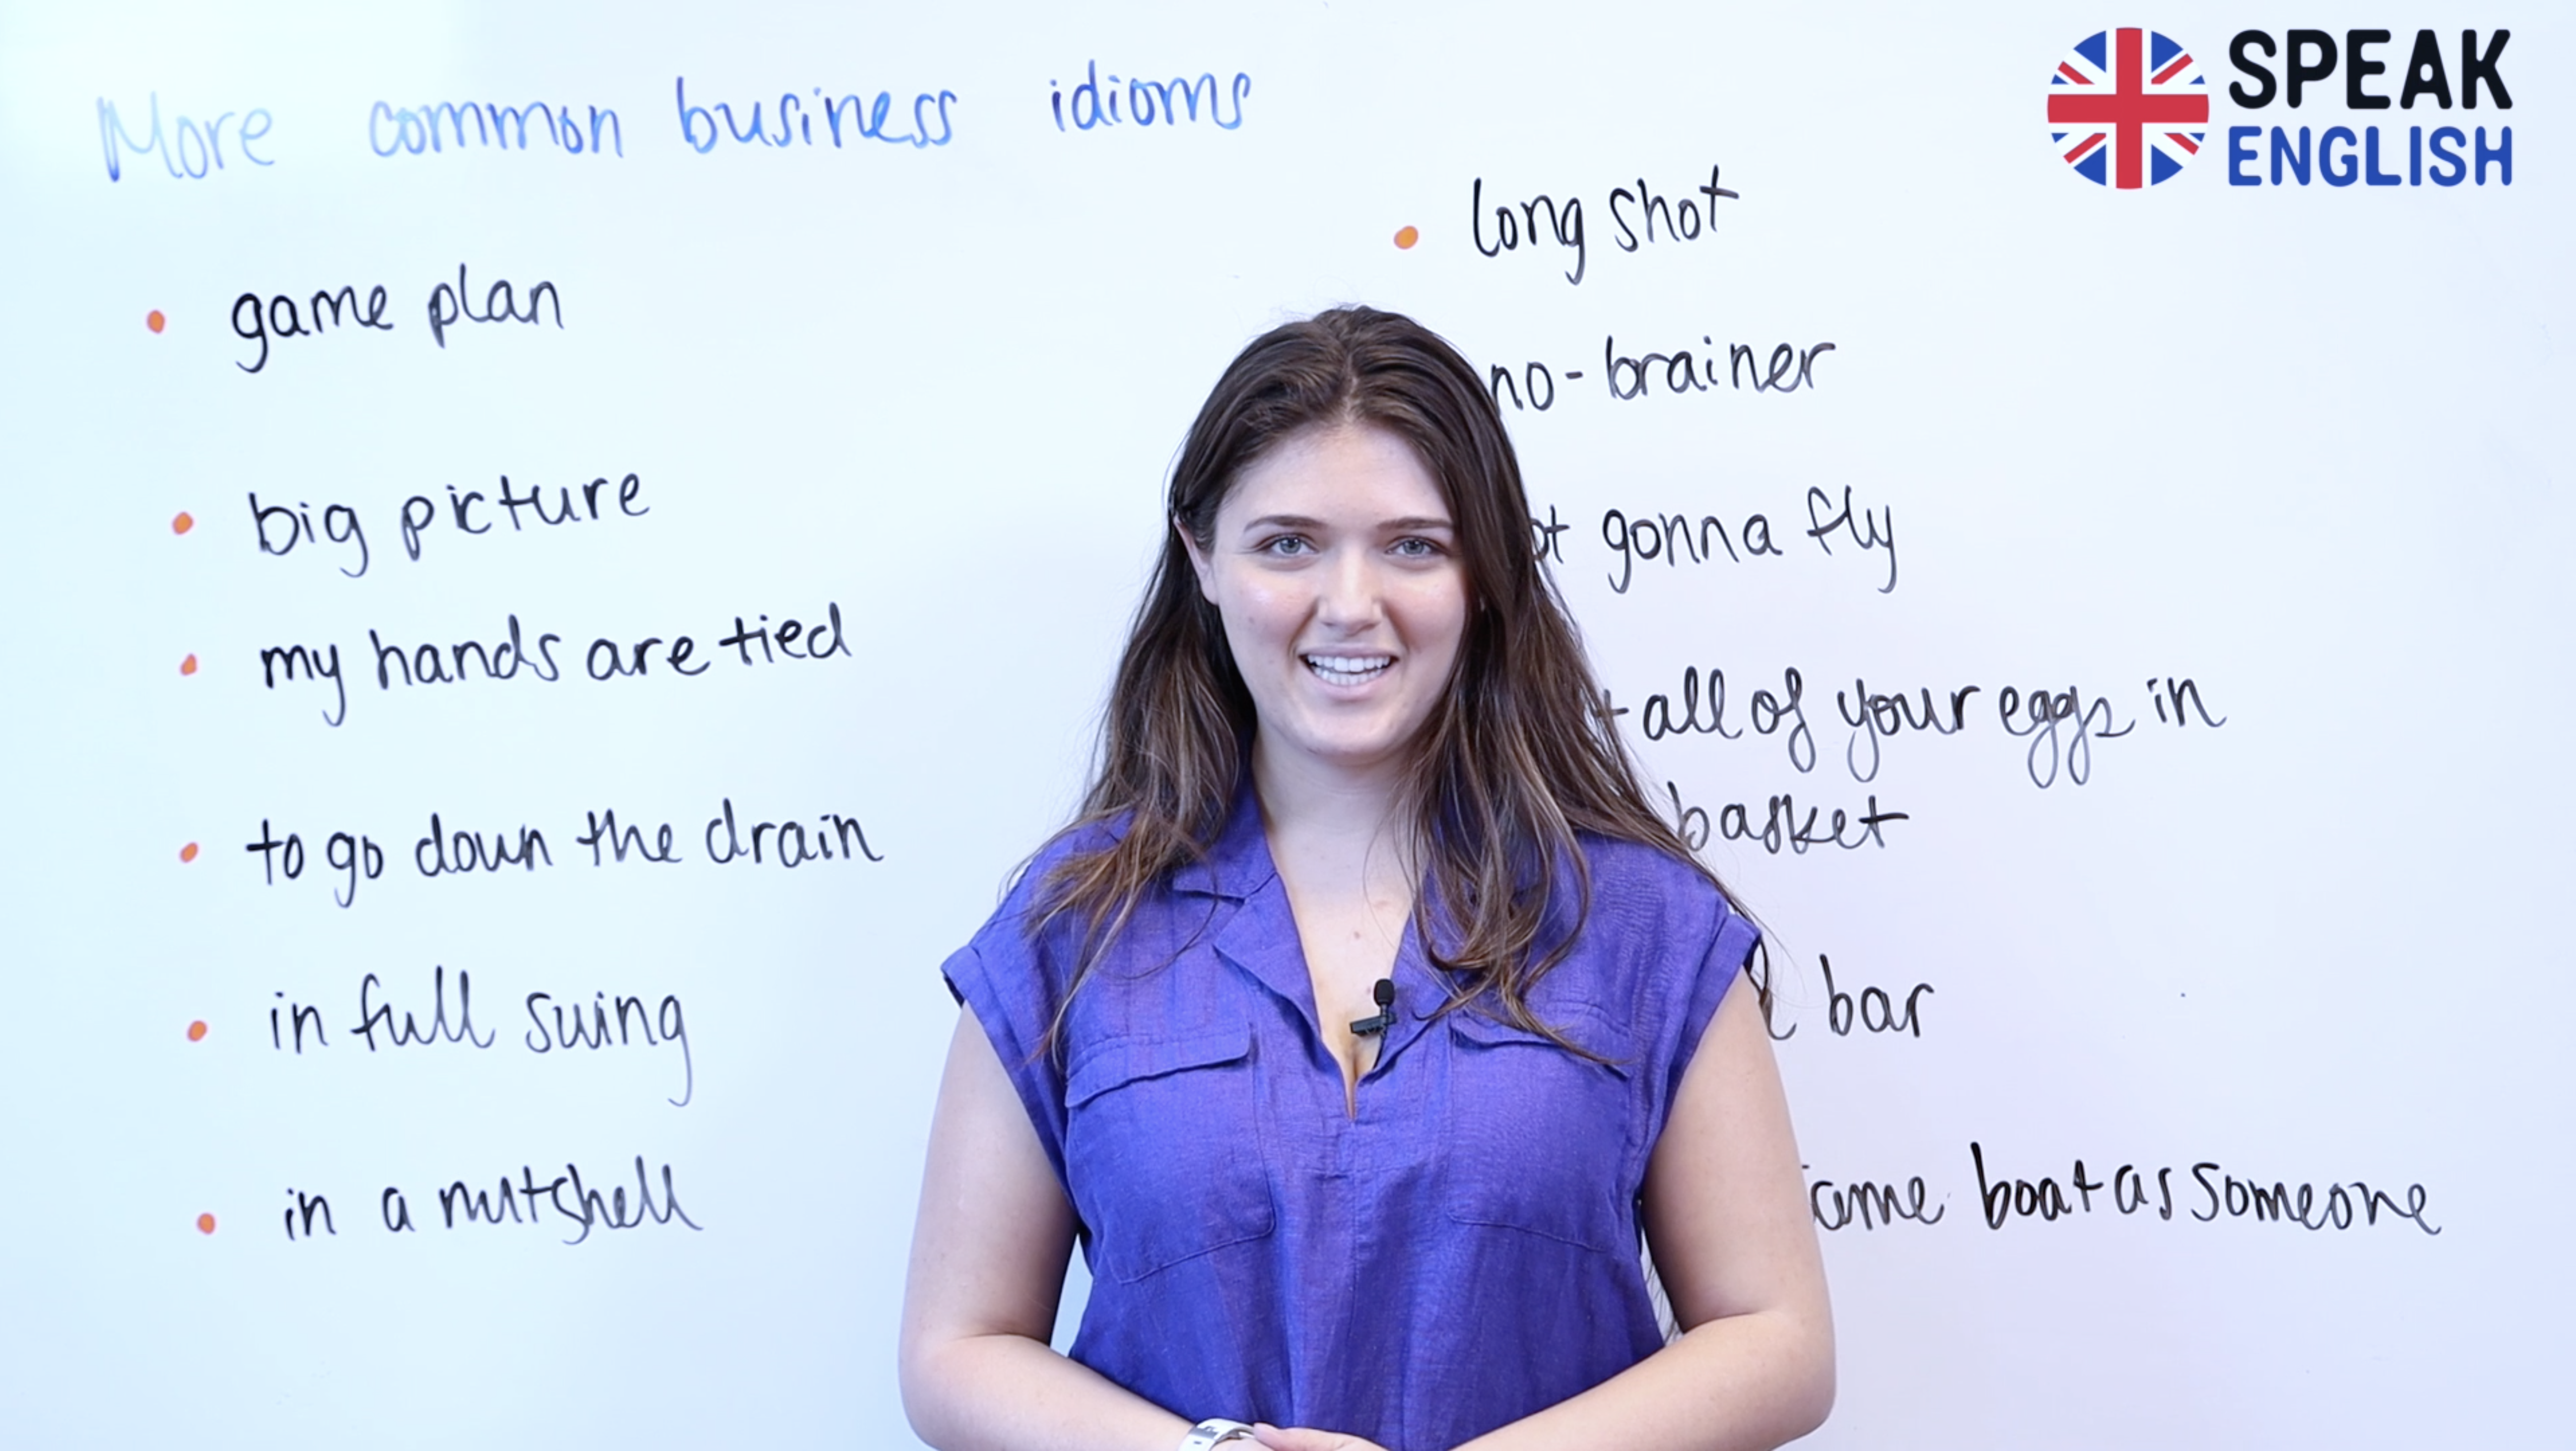 SPEAK
ENGLISH
More common business idioms
• game plan
• big picture
• my hands are tied
• to go down the drain
• in full swing
• in a nutshell
• long shot
no-brainer
gonna fly
all of your eggs in
basket
bar
boat as someone